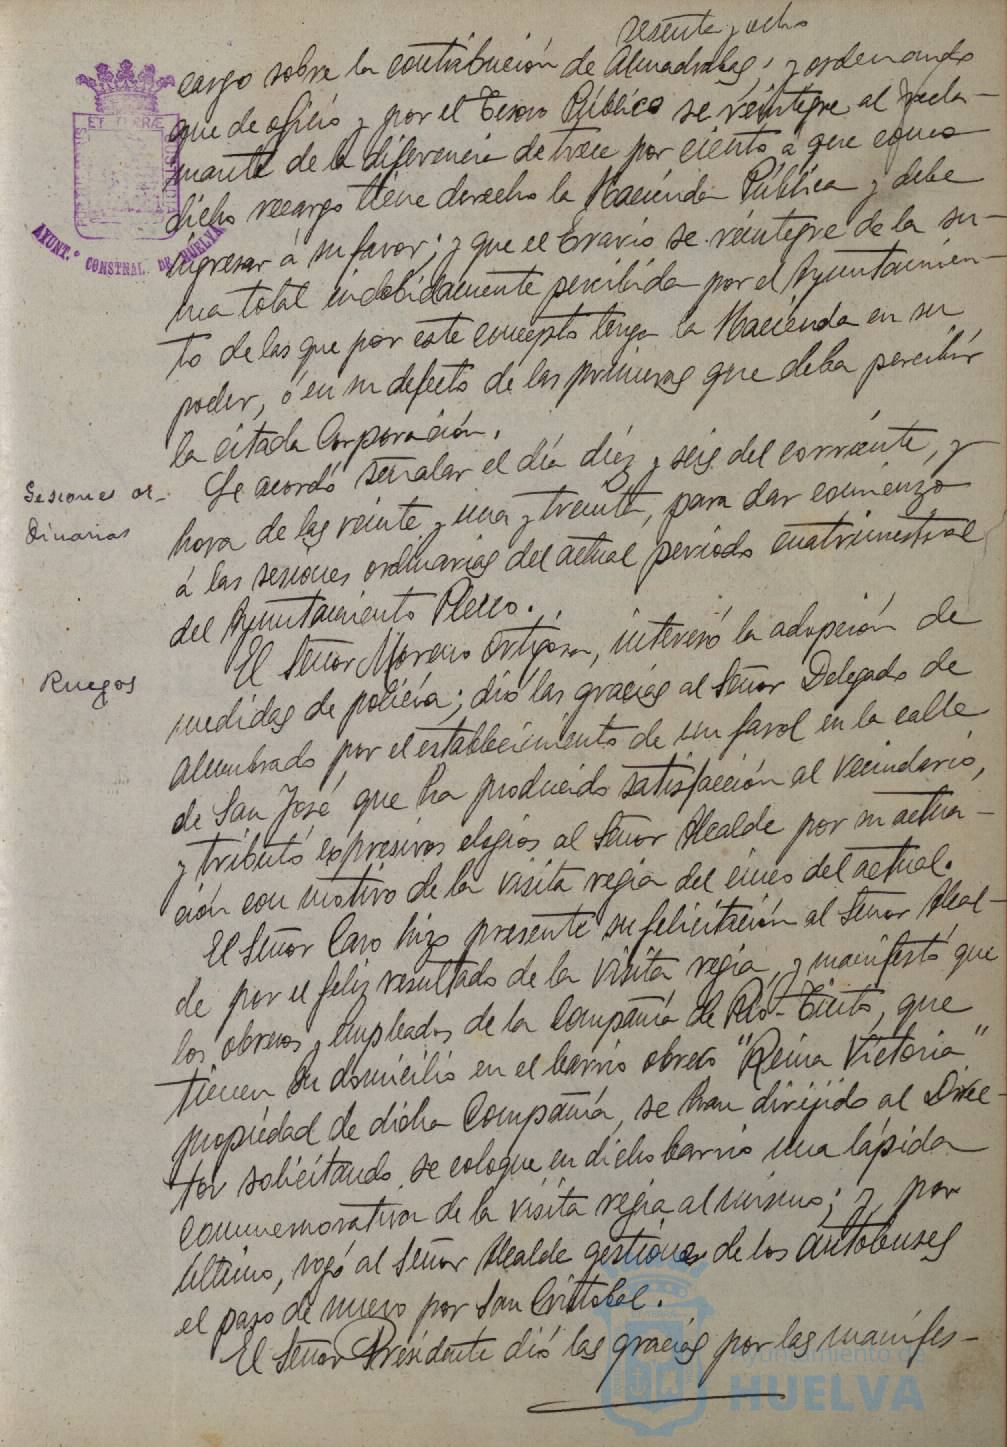 sesenta y ocho
cargo sobre la contribución de Almadrabas, y ordenando
que de oficio y por el Tesoro Público se reintegre al recla-
mante de la diferencia de trece por ciento a que como
dicho recargo tiene derecho la Hacienda Pública y debe
ingresar á su favor; y que el Erario se reintegre de la su-
ma total indebidamente percibida por el Ayuntamien-
to de las que por este concepto tenga la Hacienda en su
poder, ó en su defecto de las primeras que deba percibir
la citada Corporación.
Sesiones or-
dinarias
Se acordó señalar el día diez y seis del corriente, y
hora de las veinte y una y treinta, para dar comienzo
á las sesiones ordinarias del actual periodo cuatrimestral
del Ayuntamiento Pleno.
Ruegos
El Señor Moreno Ortigosa, interesó la adopción de
medidas de policía; dió las gracias al Señor Delegado de
alumbrado por el establecimiento de un farol en la calle
de San José, que ha producido satisfacción al vecindario,
y tributó expresivos elogios al Señor Alcalde por su actua-
ción con motivo de la visita regia del cinco del actual.
El Señor Caro hizo presente su felicitación al Señor Alcal-
de por el feliz resultado de la visita regia, y manifestó que
los obreros y empleados de la Compañía de Rio-Tinto, que
tienen su domicilio en el barrio obrero "Reina Victoria"
propiedad de dicha Compañía, se han dirijido al Direc-
tor solicitando se coloque en dicho barrio una lápida
conmemorativa de la visita regia al mismo; y, por
último, rogó al Señor Alcalde gestione de los autobuses
el paso de nuevo por San Cristobal.
El Señor Presidente dió las gracias por las manifes-
AYUNT.º CONSTNAL. DE HUELVA
Ayuntamiento de
HUELVA